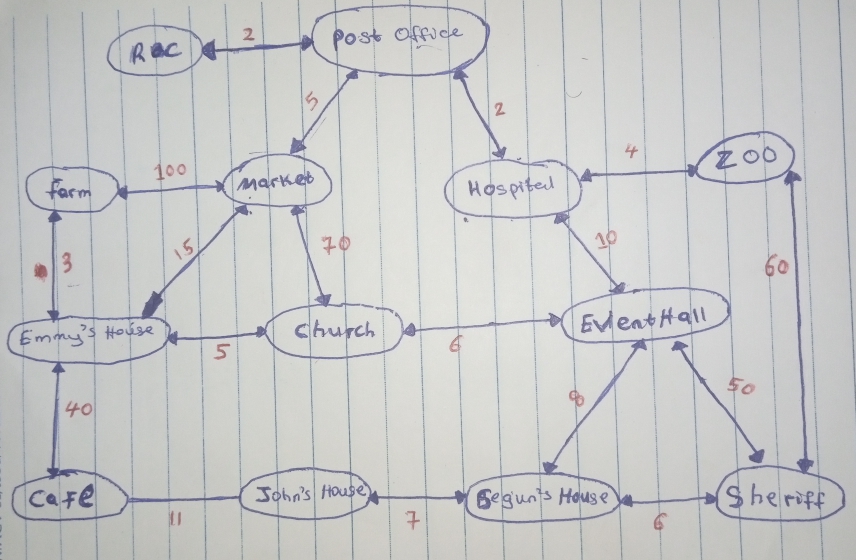 Post Office
2
5
2
4
ZOO
farm
100
Market
Hospital
3
15
70
10
60
Emmy's House
5
Church
6
Event Hall
40
8
50
Cafe
11
John's House
7
Segun's House
6
Sheriff